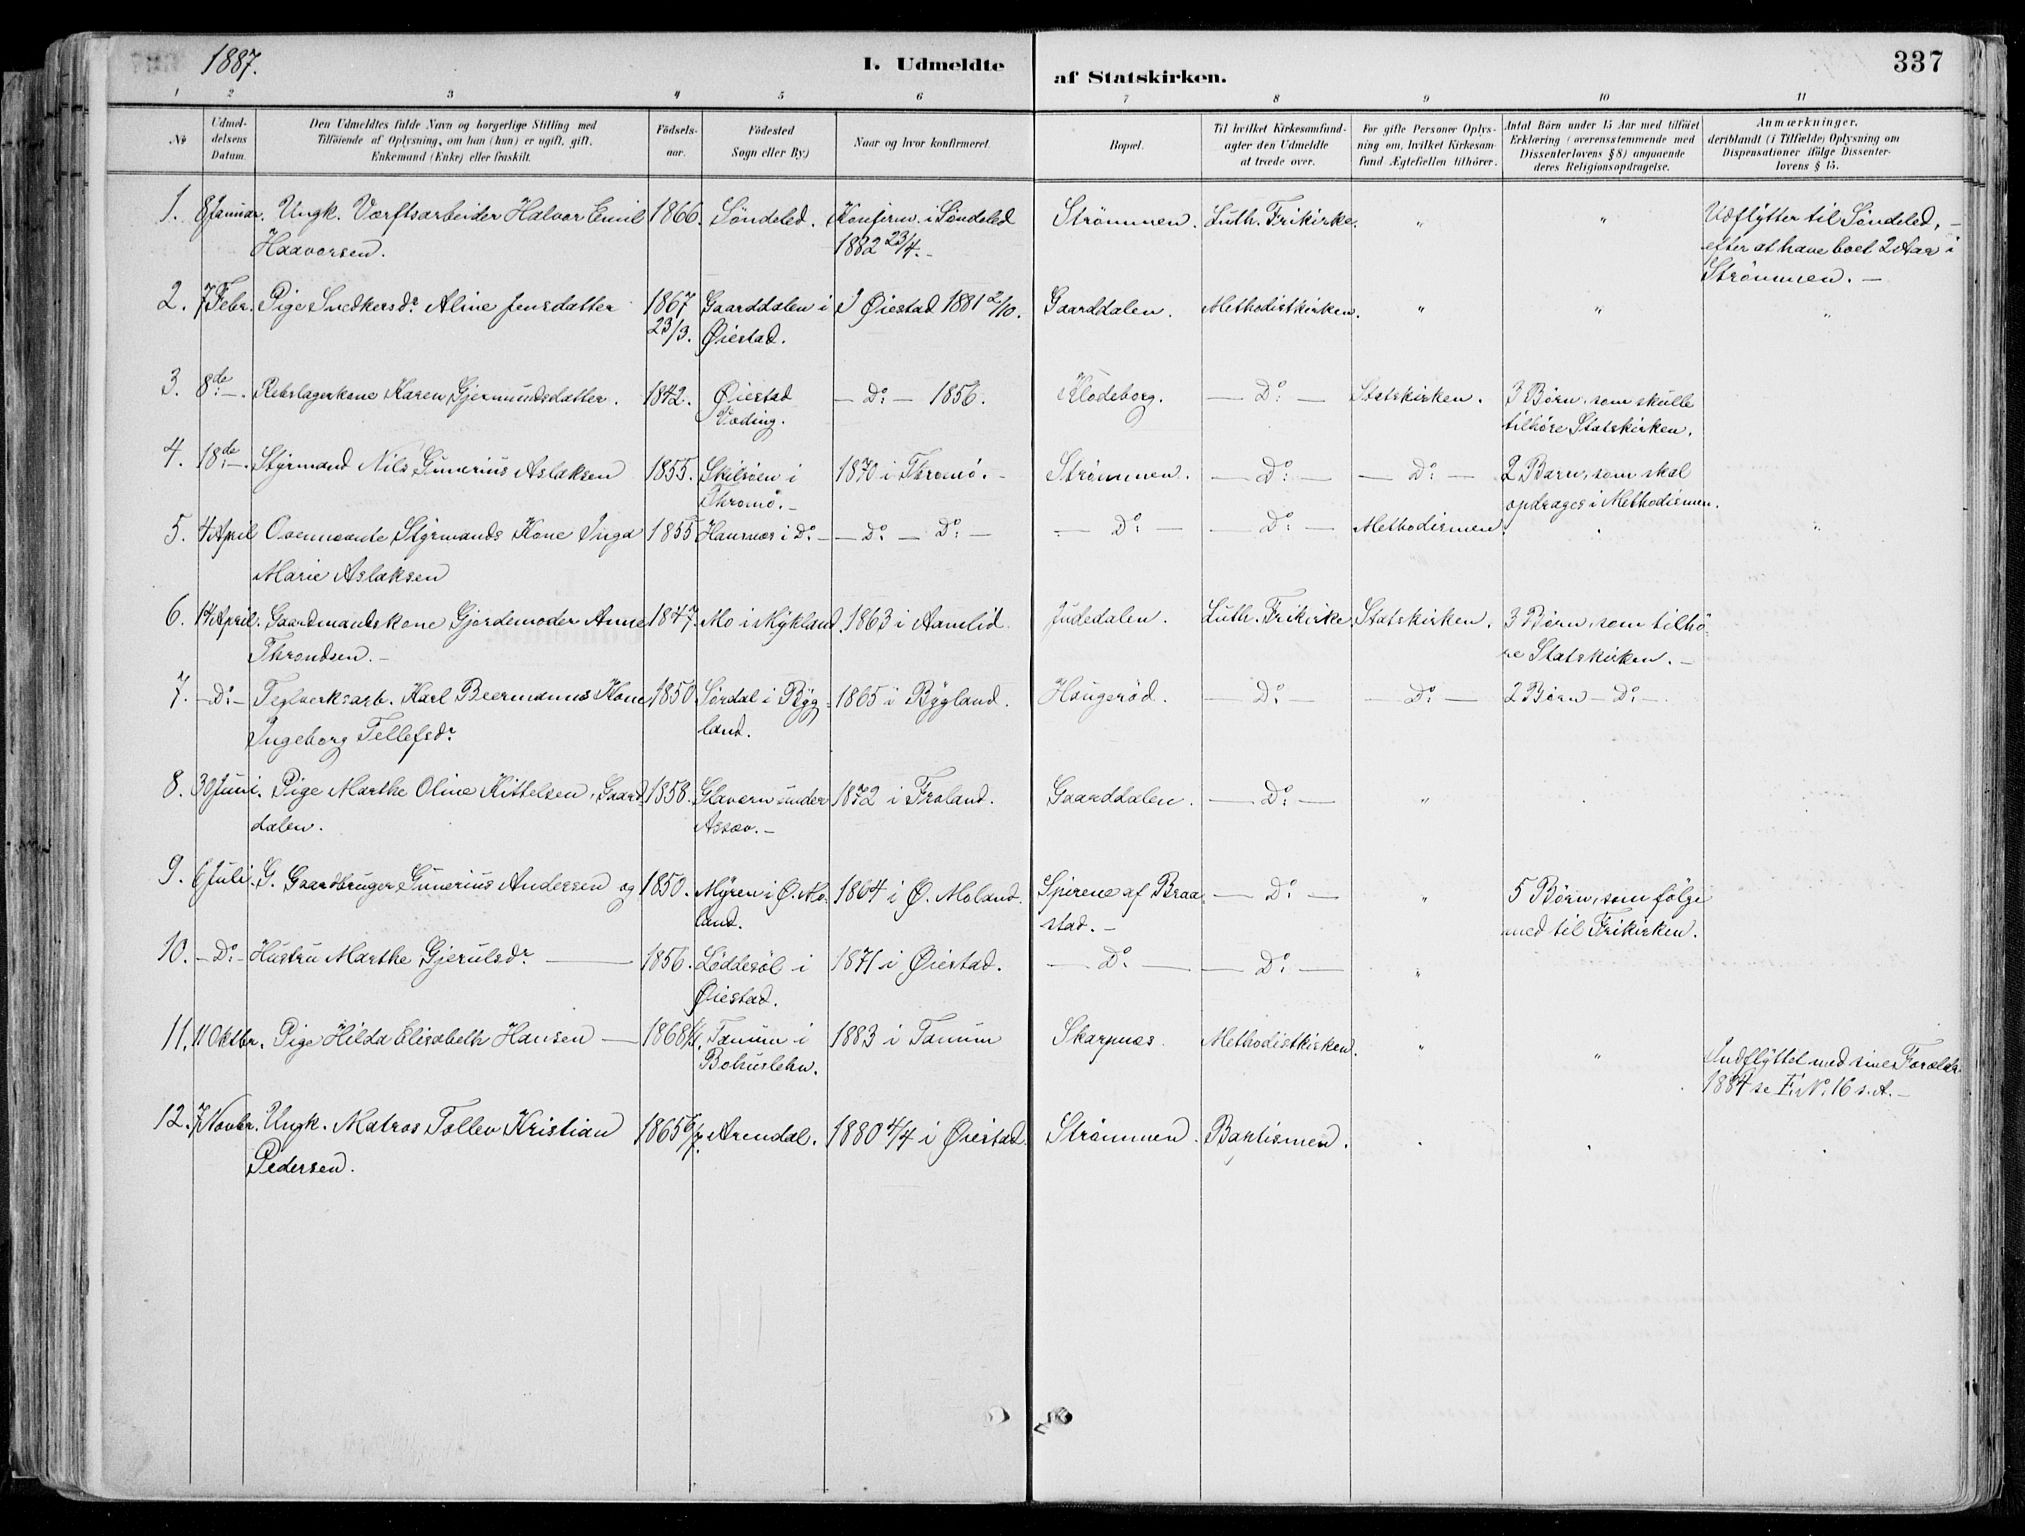 1887.
I. Udmeldte af Statskirken.
337
1 2 3 4 5 6 7 8 9 10 11
No
Udmel-
delsens
Datum.
Den Udmeldtes fulde Navn og borgerlige Stilling med
Tilföiende af Oplysning, om han (hun) er ugift, gift,
Enkemand (Enke) eller fraskilt.
Födsels-
aar.
Födested
Sogn eller By)
Naar og hvor konfirmeret
Bopæl.
Til hvilket Kirkesamfund-
agter den Udmeldte
at træde over.
For gifte Personer Oplys-
ning om, hvilket Kirkesam-
fund Ægtefællen tilhörer.
Antal Börn under 15 Aar med tilföiet
Erklæring (overensstemmende med
Dissenterlovens § 8) angaaende
deres Religionsopdragelse.
Anmærkninger,
deriblandt (i Tilfælde) Oplysning om
Dispensationer ifölge Dissenter-
lovens § 15.
1. 8 Januar. Ungk. Værftsarbeider Halvor Emil 1866. Söndeled. Konfirm. i Söndeled Strömmen. Luth. Frikirke. " " Udflytter til Söndeled, –
Haavorsen. 1882 23/4. – efter at have boet 2 Aar i
Strömmen. –
2. 7 Febr. Pige Snedkersdr. Aline Jensdatter 1867 Gaarddalen i I Øiestad 1881 2/10. Gaarddalen. Methodistkirken. " " "
23/3. Øiestad.
3. 8de –. Rebslagerkone Karen Gjermundsdatter. 1842. Øiestad – Do: – 1856. Klodeborg. – Do: – Statskirken. 3 Börn, som skulle
Væding. tilhöre Statskirken.
4. 18de –. Styrmand Nils Gunerius Aslaksen 1855. Skilsöen i 1870 i Thromö. – Strömmen. – Do: – – Do: – 2 Barn, som skal
Thromö. – opdrages i Methodismen.
5. 4 April Ovennævnte Styrmands Kone Inga 1855 Hausnæs i Do: – – Do: – Do: – – Do: – – Do: – Methodismen. "
Marie Aslaksen
6. 14 April. Gaardmandskone Gjordemoder Anne 1847. Mo i Mykland. 1863 i Aamlid. Judedalen. Luth. Frikirke Statskirken. 3 Börn, som tilhö-
Throndsen. – re Statskirken. –
7. – Do: – Teglverksarb. Karl Beermanns Kone 1850 Sördal i Byg- 1865 i Bygland. Haugeröd. – Do: – – Do: – 2 Börn – Do: –.
Ingeborg Tellefsdr. land.
8. 30 Juni. Pige Marthe Oline Kittelsen, Gaard- 1858. Glavern under 1872 i Froland. Gaarddalen. – Do: – "
dalen. Assev. –
9. 6 Juli. G. Gaardbruger Gunerius Andersen og 1850. Myren i Ø. Mo- 1864 i Ø. Moland. Spirene af Braa- – Do: – " 5 Börn, som fölge
land. stad. – med til Frikirken.
10. – Do: – Hustru Marthe Gjerulsdr. – 1856. Löddesöl i 1871 i Øiestad. – Do: – – Do: – "
Øiestad.
11. 11 Oktbr. Pige Hilda Elisabeth Hansen – 1868 Tanum i 1883 i Tanum Skarpnæs. Methodistkirken. " " Indflyttet med sine Forældr.
Bohuslehn. 1884 se F. No. 16 s. A. –
12. 7 Novbr. Ungk. Matros Tollev Kristian 1865 6/7. Arendal. 1880 4/4 i Øiestad Strömmen. Baptismen. " " "
Pedersen.